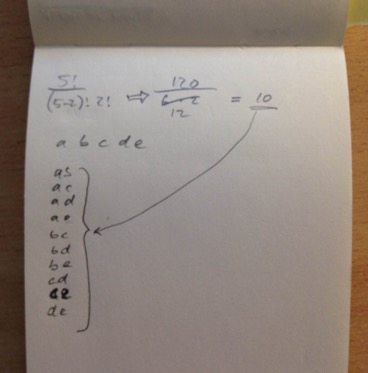 5! / (5-2)! 2! ⇒ 120 / 12 = 10
a b c d e
ab
ac
ad
ae
bc
bd
be
cd
ce
de